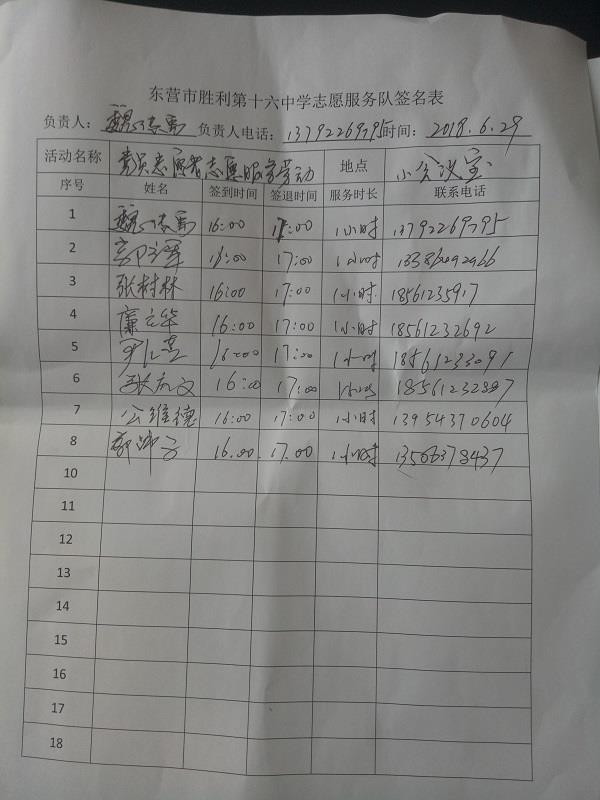 东营市胜利第十六中学志愿服务队签名表
负责人： 魏 负责人电话：13792269795 时间：2018.6.29
活动名称 党员志愿者志愿服务劳动 地点 小会议室
序号 姓名 签到时间 签退时间 服务时长 联系电话
1 魏 16:00 17:00 1小时 13792269795
2 16:00 17:00 1小时
3 张树林 16:00 17:00 1小时 18561235917
4 廉立华 16:00 17:00 1小时 18561232692
5 16:00 17:00 1小时 18561233091
6 张 文 16:00 17:00 1小时 18561232897
7 公维德 16:00 17:00 1小时 13954370604
8 16.00 17.00 1小时 13506378437
10
11
12
13
14
15
16
17
18